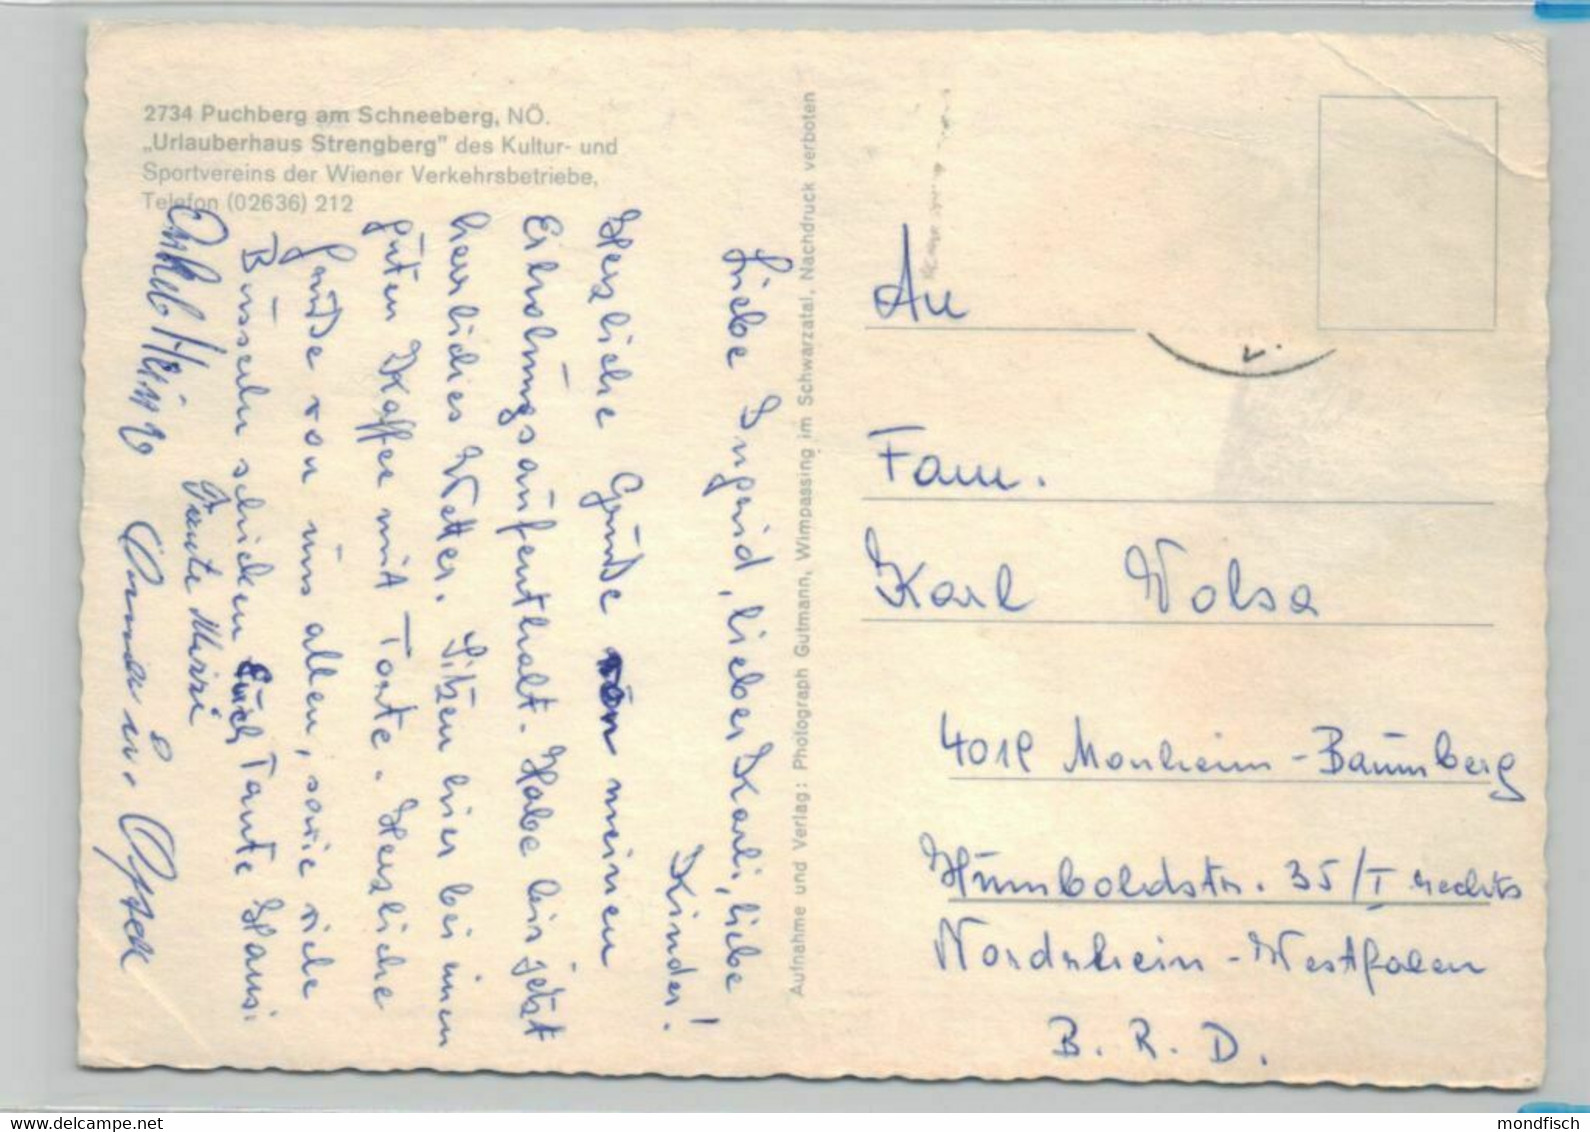 2734 Puchberg am Schneeberg, NÖ.
„Urlauberhaus Strengberg" des Kultur- und
Sportvereins der Wiener Verkehrsbetriebe,
Telefon (02636) 212
Liebe Ingrid, lieber Karli, liebe
Kinder!
Herzliche Grüße von meinen
Erholungsaufenthalt. Habe bis jetzt
herrliches Wetter. Sitzen hier bei einen
guten Kaffee mit Torte. Herzliche
Grüße von uns allen, sowie viele
Busserln schicken Euch Tante Hansi
Tante Mizzi
Onkel Heinz
Aufnahme und Verlag: Photograph Gutmann, Wimpassing im Schwarzatal, Nachdruck verboten
An
Fam.
Karl Wolsa
4019 Monheim-Baumberg
Humboldstr. 35/I rechts
Nordrhein-Westfalen
B. R. D.
mondfisch
www.delcampe.net